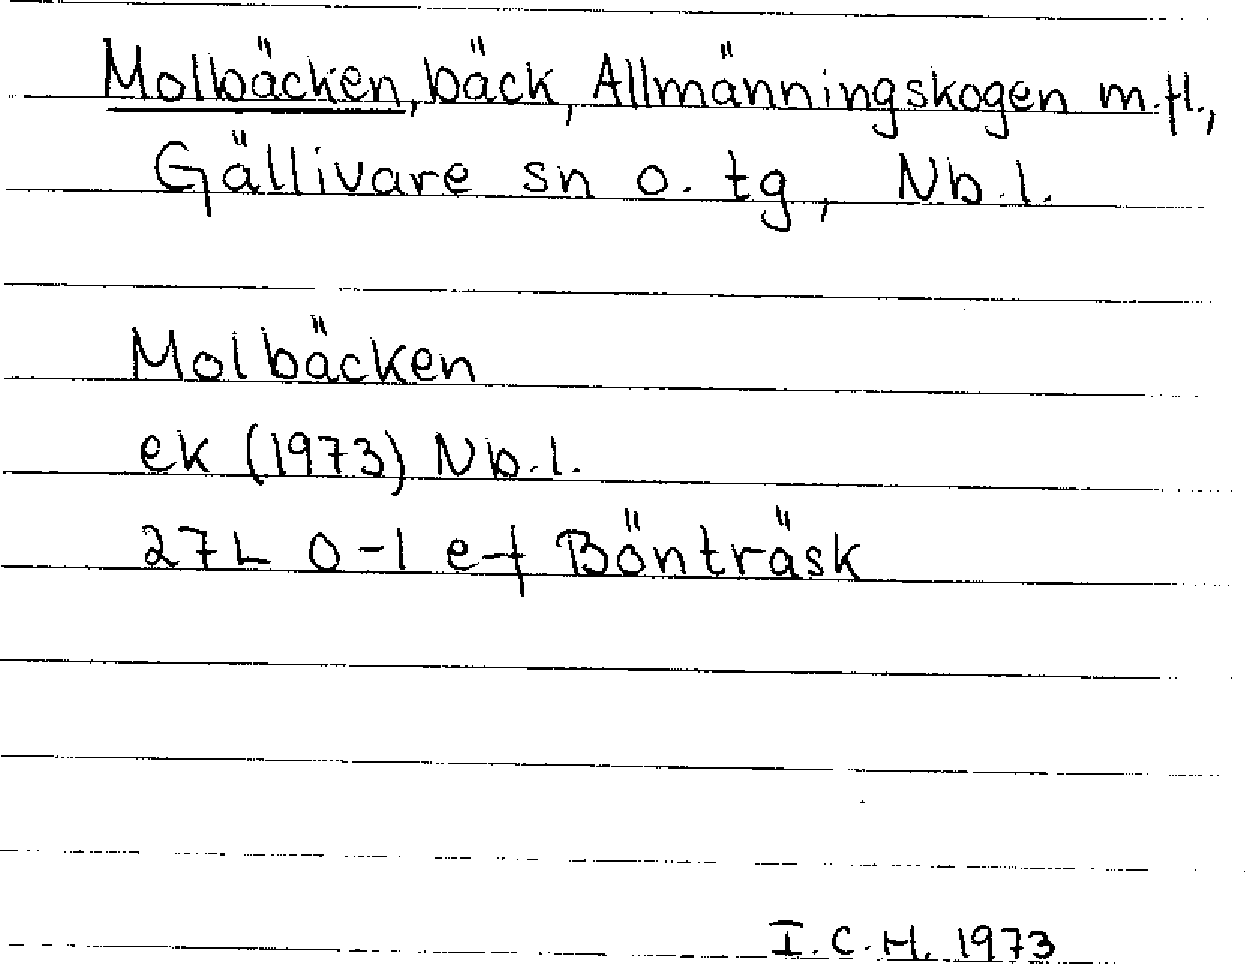 Molbäcken, bäck, Allmänningskogen m.fl.,
Gällivare sn o. tg, Nb.l.
Molbäcken
ek (1973) Nb.l.
27L 0-1 e-f Bönträsk
I.C.H. 1973